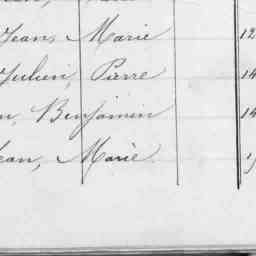 Jean Marie 12
Julien, Pierre 14
n, Benjamin 14
ean, Marie